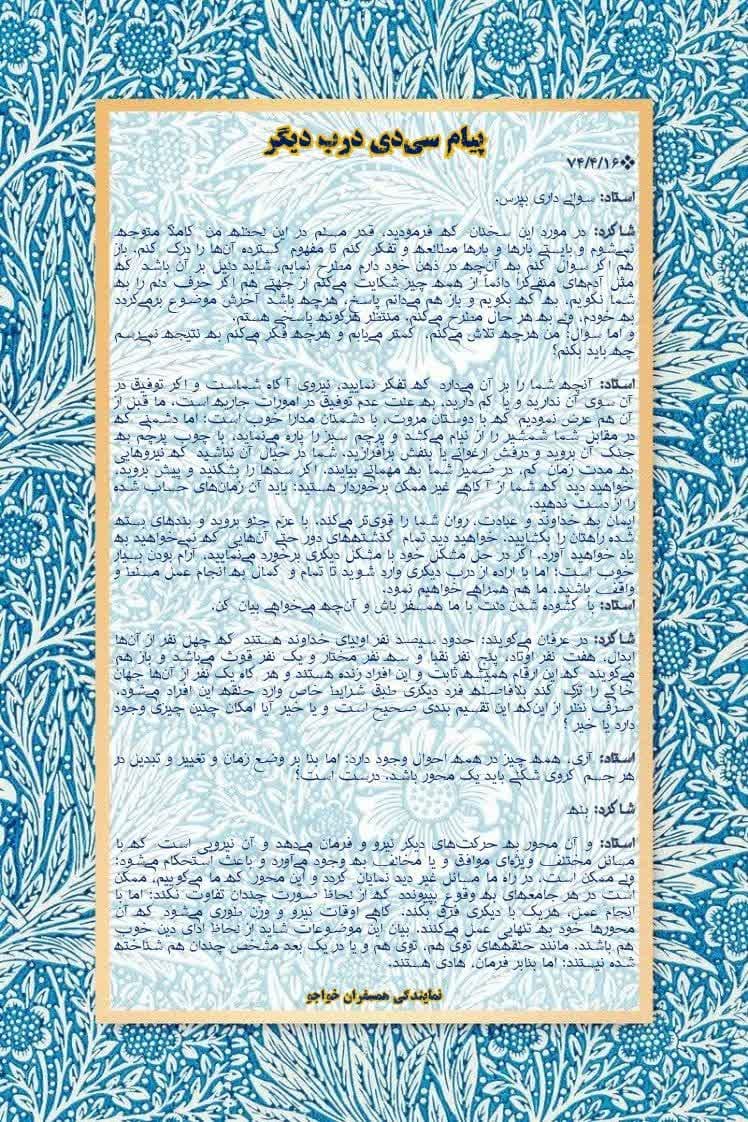 پیام سی‌دی درب دیگر
❖۷۴/۴/۱۶
استاد: سوالی داری بپرس.
شاگرد: در مورد این سخنان که فرمودید، قدر مسلم در این لحظه من کاملاً متوجه
نمی‌شوم و بایستی بارها و بارها مطالعه و تفکر کنم تا مفهوم گسترده آن‌ها را درک کنم. باز
هم اگر سوال کنم به آن‌چه در ذهن خود دارم مطرح نمایم، شاید دلیل بر آن باشد که
مثل آدم‌های متفکر دائماً از همه چیز شکایت می‌کنم از جهتی هم اگر حرف دلم را به
شما نگویم، به که بگویم و باز هم می‌دانم پاسخ، هرچه باشد آخرش موضوع برمی‌گردد
به خودم، ولی به هر حال مطرح می‌کنم، منتظر هرگونه پاسخی هستم.
و اما سوال: من هرچه تلاش می‌کنم، کمتر می‌یابم و هرچه فکر می‌کنم به نتیجه نمی‌رسم
چه باید بکنم؟
استاد: آنچه شما را بر آن می‌دارد که تفکر نمایید، نیروی آگاه شماست و اگر توفیق در
آن سوی آن ندارید و یا کم دارید، به علت عدم توفیق در امورات جاریه است، ما قبل از
آن هم عرض نمودیم که با دوستان مروت، با دشمنان مدارا خوب است؛ اما دشمنی که
در مقابل شما شمشیر را از نیام می‌کشد و پرچم سبز را پاره می‌نماید، با چوب پرچم به
جنگ آن بروید و درفش ارغوانی یا بنفش برافرازید. شما در خیال آن نباشید که نیروهایی
به مدت زمان کم، در ضمیر شما به مهمانی بیایند. اگر سدها را بشکنید و پیش بروید،
خواهید دید که شما از آگاهی غیر ممکن برخوردار هستید؛ باید آن زمان‌های حساب شده
را از دست ندهید.
ایمان به خداوند و عبادت، روان شما را قوی‌تر می‌کند. با عزم جلو بروید و بندهای بسته
شده راهتان را بگشایید. خواهید دید تمام گذشته‌های دور حتی آن‌هایی که نمی‌خواهید به
یاد خواهید آورد. اگر در حل مشکل خود با مشکل دیگری برخورد می‌نمایید، آرام بودن بسیار
خوب است؛ اما با اراده از درب دیگری وارد شوید تا تمام و کمال به انجام عمل مسلط و
واقف باشید. ما هم همراهی خواهیم نمود.
استاد: با گشوده شدن دلت با ما همسفر باش و آن‌چه می‌خواهی بیان کن.
شاگرد: در عرفان می‌گویند: حدود سیصد نفر اولیای خداوند هستند که چهل نفر از آن‌ها
ابدال، هفت نفر اوتاد، پنج نفر نقبا و سه نفر مختار و یک نفر غوث می‌باشد و باز هم
می‌گویند که این ارقام همیشه ثابت و این افراد زنده هستند و هر گاه یک نفر از آن‌ها جهان
خاکی را ترک کند بلافاصله فرد دیگری طبق شرایط خاص وارد حلقه این افراد می‌شود.
صرف نظر از این‌که این تقسیم بندی صحیح است و یا خیر آیا امکان چنین چیزی وجود
دارد یا خیر؟
استاد: آری، همه چیز در همه احوال وجود دارد؛ اما بنا بر وضع زمان و تغییر و تبدیل در
هر جسم کروی شکلی باید یک محور باشد. درست است؟
شاگرد: بله
استاد: و آن محور به حرکت‌های دیگر نیرو و فرمان می‌دهد و آن نیرویی است که با
مسائل مختلف ویژه‌ای موافق و یا مخالف به وجود می‌آورد و باعث استحکام می‌شود؛
ولی ممکن است، در راه ما مسائل غیر دید نمایان گردد و این محور که ما می‌گوییم، ممکن
است در هر جامعه‌ای به وقوع بپیوندد که از لحاظ صورت چندان تفاوت نکند؛ اما با
انجام عمل، هریک با دیگری فرق بکند. گاهی اوقات نیرو و وزن طوری می‌شود که آن
محورها خود به تنهایی عمل می‌کنند. بیان این موضوعات شاید از لحاظ ادای دین خوب
هم باشند. مانند حلقه‌های توی هم، توی هم و یا در یک بعد مشخص چندان هم شناخته
شده نیستند؛ اما بنابر فرمان، هادی هستند.
نمایندگی همسفران خواجو